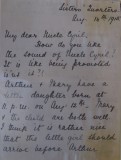 Sisters Quarters
Aug 14th 1915
My dear Uncle Cyril.
How do you like
the sound of Uncle Cyril?
It is like being promoted
isn't it?!
Arthur & Mary have a
little daughter born at
2 p.m. on Aug 12th. Mary
& the child are both well
I am it is rather nice
that the little girl should
arrive before Arthur